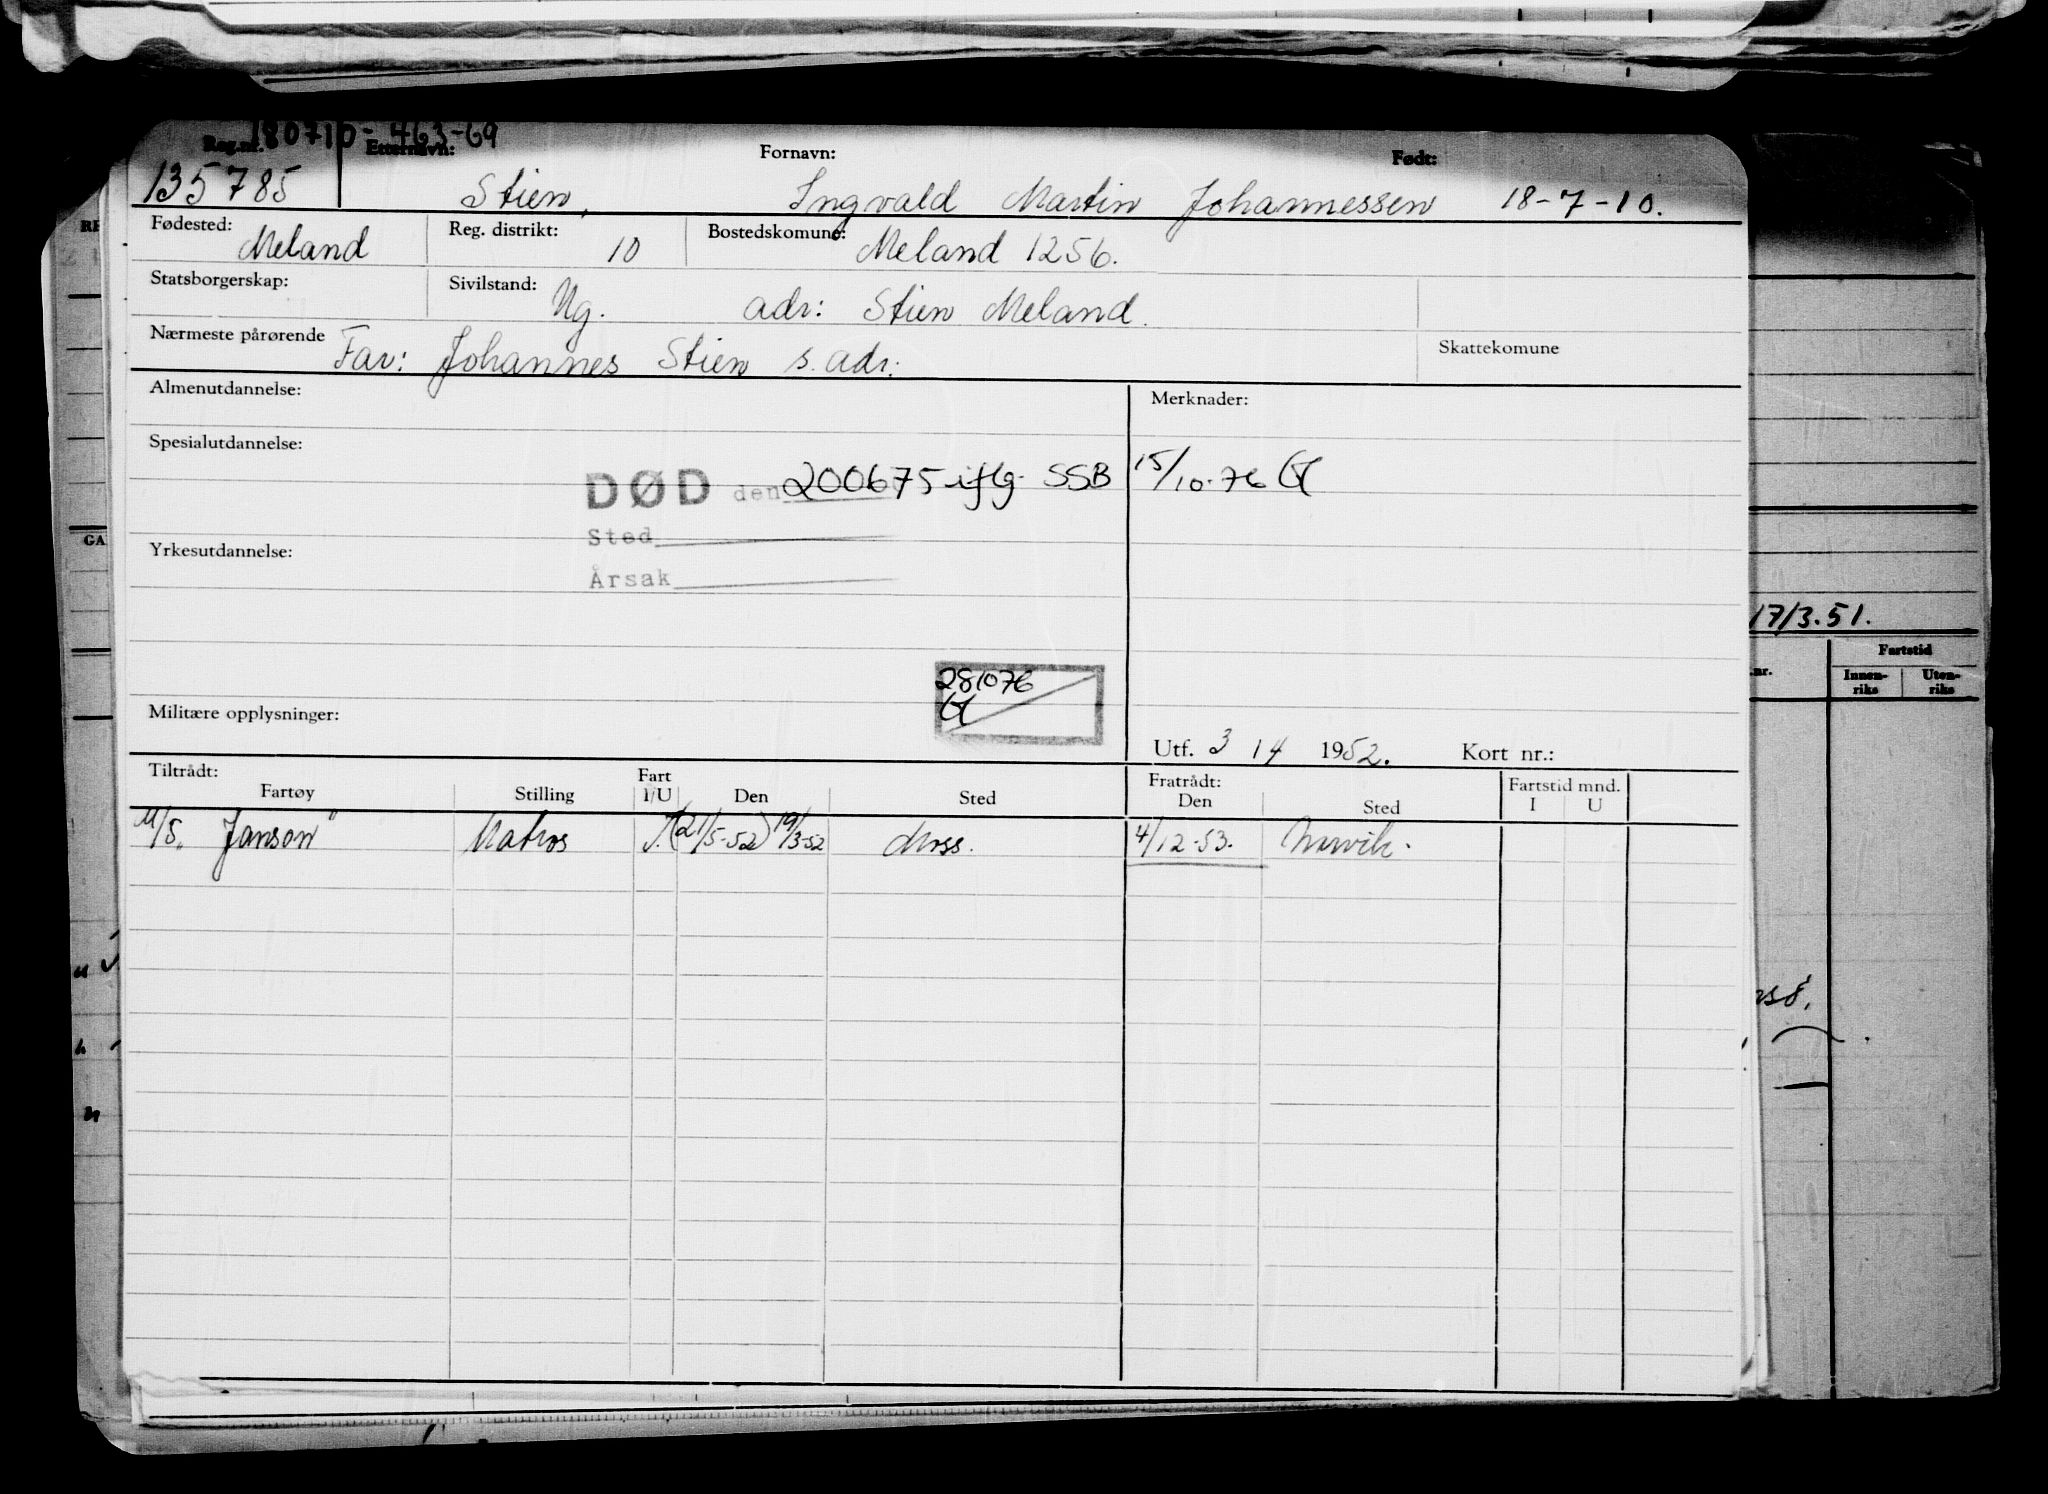 180710-463-69
Reg.nr. Etternavn: Fornavn: Født:
135785 Stien, Ingvald Martin Johannessen 18-7-10.
Fødested: Meland Reg. distrikt: 10 Bostedskomune: Meland 1256.
Statsborgerskap: Sivilstand: Ug. adr: Stien Meland.
Nærmeste pårørende Far: Johannes Stien s. adr. Skattekomune
Almenutdannelse: Merknader:
Spesialutdannelse:
DØD den 200675 iflg. SSB 15/10-76
Sted
Yrkesutdannelse:
Årsak
17/3.51.
Fartstid
nr. Innen-riks Uten-riks
281076
Militære opplysninger:
Utf. 3 / 4 1952. Kort nr.:
Tiltrådt: Fart Fratrådt: Fartstid mnd.
Fartøy Stilling I/U Den Sted Den Sted I U
M/S. "Janson" Matros I. (21/5-52) 19/3-52 Moss. 4/12-53. Narvik.